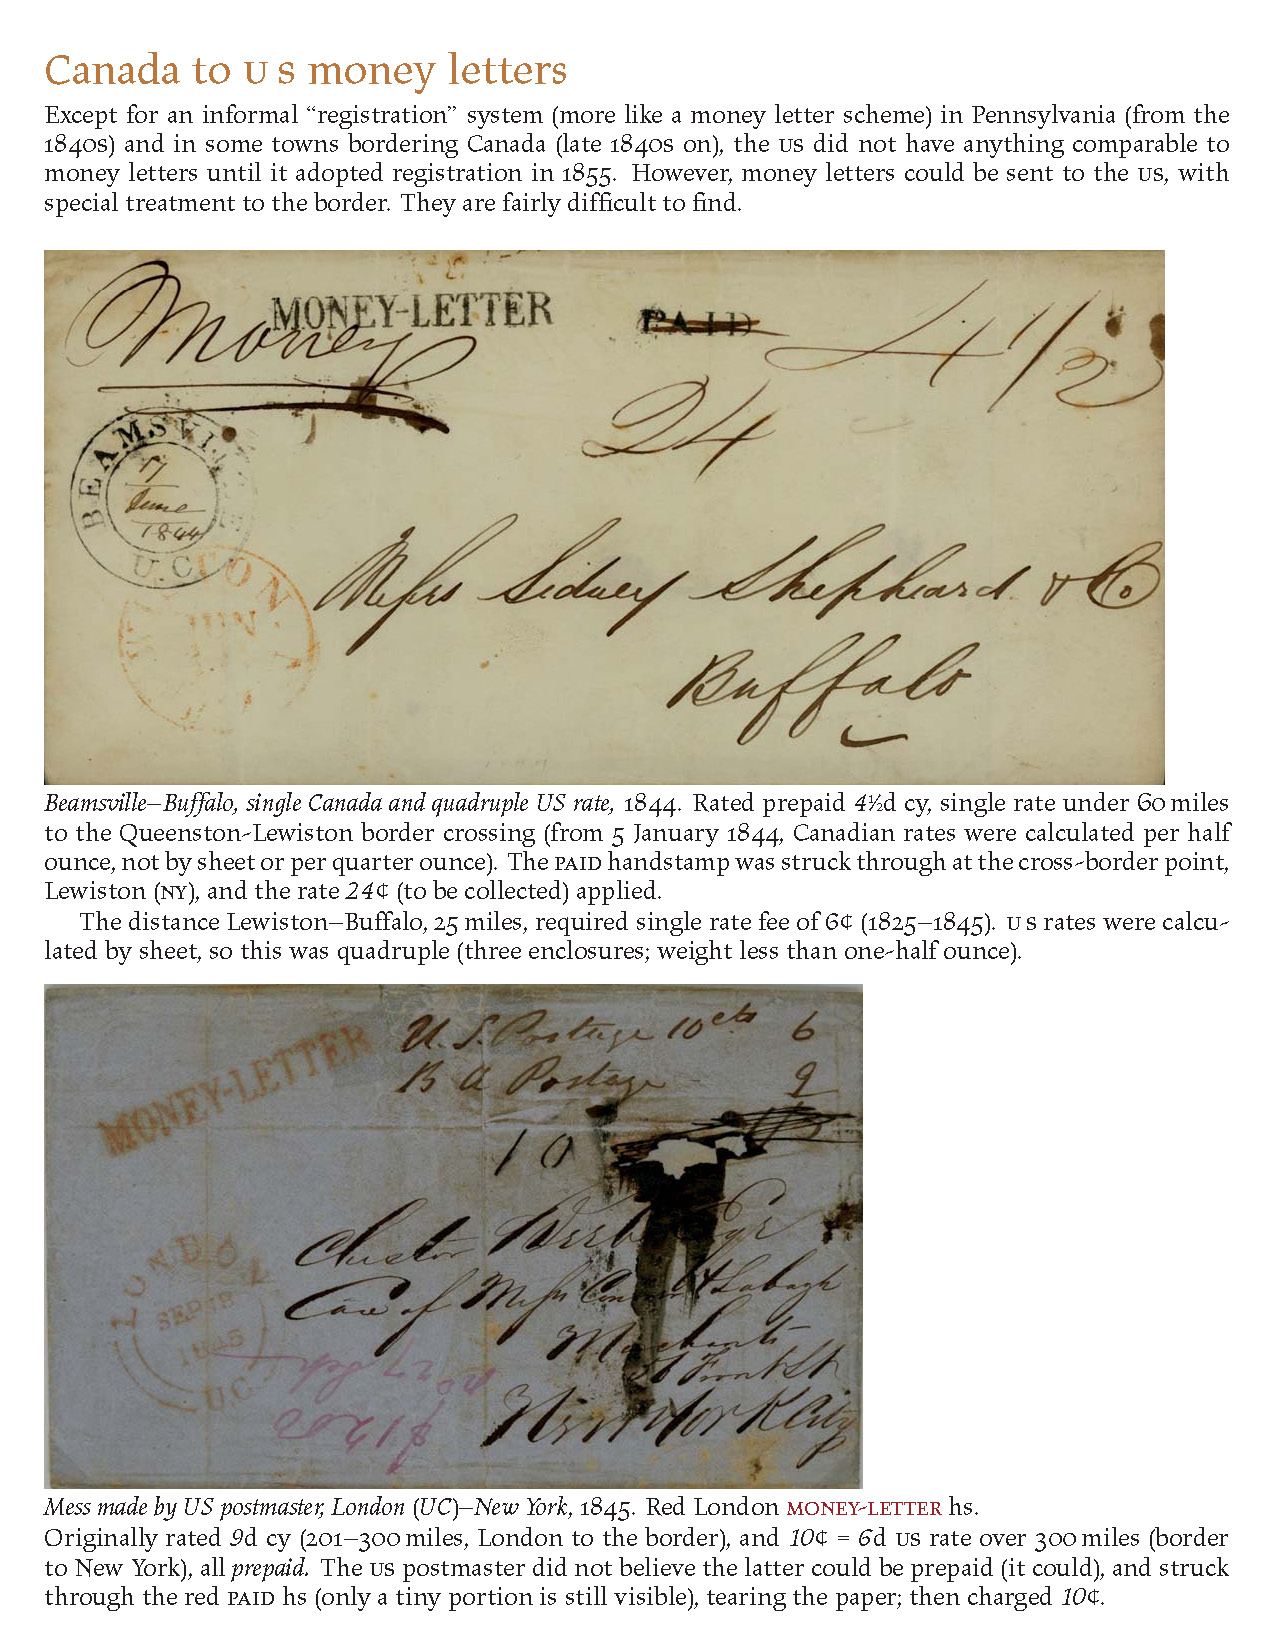 Canada to U S money letters
Except for an informal “registration” system (more like a money letter scheme) in Pennsylvania (from the
1840s) and in some towns bordering Canada (late 1840s on), the US did not have anything comparable to
money letters until it adopted registration in 1855. However, money letters could be sent to the US, with
special treatment to the border. They are fairly difficult to find.
Money
MONEY-LETTER
PAID
4 1/2
24
BEAMSVI
17
June
1844
U.C.
TON
JUN
Messrs Sidney Shepheard & Co
Buffalo
Beamsville–Buffalo, single Canada and quadruple US rate, 1844. Rated prepaid 4½d cy, single rate under 60 miles
to the Queenston-Lewiston border crossing (from 5 January 1844, Canadian rates were calculated per half
ounce, not by sheet or per quarter ounce). The PAID handstamp was struck through at the cross-border point,
Lewiston (NY), and the rate 24¢ (to be collected) applied.
The distance Lewiston–Buffalo, 25 miles, required single rate fee of 6¢ (1825–1845). U S rates were calcu-
lated by sheet, so this was quadruple (three enclosures; weight less than one-half ounce).
MONEY-LETTER
U.S. Postage 10cts 6
B A Postage 9
10
Care of Messrs
Merchants
Front St
New York City
LONDON
SEP 18
1845
U.C.
$1200
Mess made by US postmaster, London (UC)–New York, 1845. Red London MONEY-LETTER hs.
Originally rated 9d cy (201–300 miles, London to the border), and 10¢ = 6d US rate over 300 miles (border
to New York), all prepaid. The US postmaster did not believe the latter could be prepaid (it could), and struck
through the red PAID hs (only a tiny portion is still visible), tearing the paper; then charged 10¢.